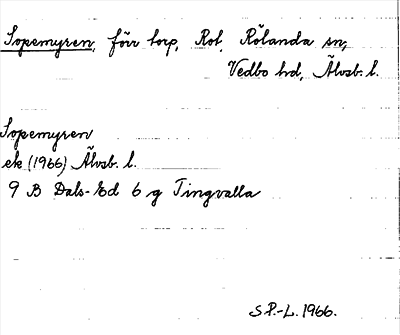 Sopemyren, förr torp, Rot, Rölanda sn,
Vedbo hd, Älvsb. l.
Sopemyren
ek (1966) Älvsb. l.
9 B Dals-Ed 6 g Tingvalla
S.P.-L. 1966.